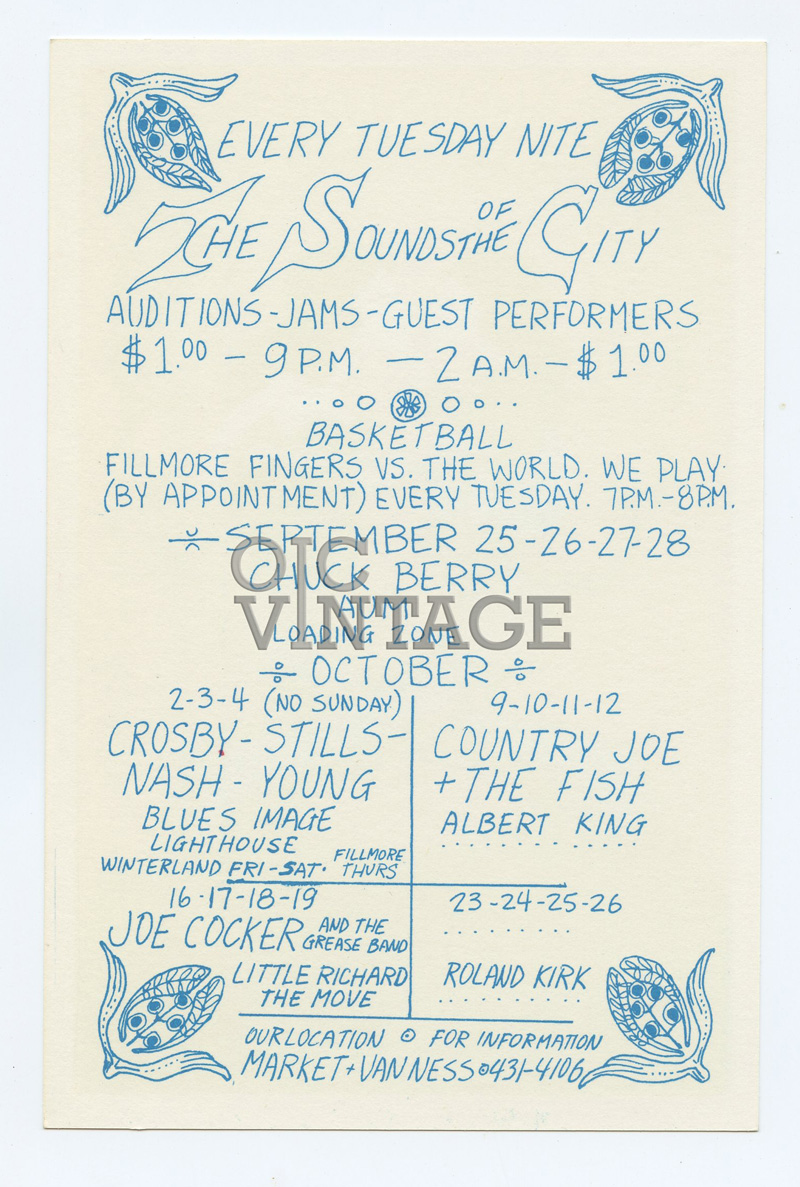 EVERY TUESDAY NITE
THE SOUNDS OF THE CITY
AUDITIONS-JAMS-GUEST PERFORMERS
$1.00 - 9 P.M. - 2 A.M. - $1.00
BASKETBALL
FILLMORE FINGERS VS. THE WORLD. WE PLAY
(BY APPOINTMENT) EVERY TUESDAY. 7P.M.-8P.M.
SEPTEMBER 25-26-27-28
CHUCK BERRY
AUM
LOADING ZONE
OIC
VINTAGE
÷ OCTOBER ÷
2-3-4 (NO SUNDAY)
CROSBY-STILLS-
NASH-YOUNG
BLUES IMAGE
LIGHTHOUSE
WINTERLAND FRI-SAT. FILLMORE THURS
9-10-11-12
COUNTRY JOE
+ THE FISH
ALBERT KING
16-17-18-19
JOE COCKER AND THE GREASE BAND
LITTLE RICHARD
THE MOVE
23-24-25-26
ROLAND KIRK
OUR LOCATION FOR INFORMATION
MARKET + VAN NESS 431-4106